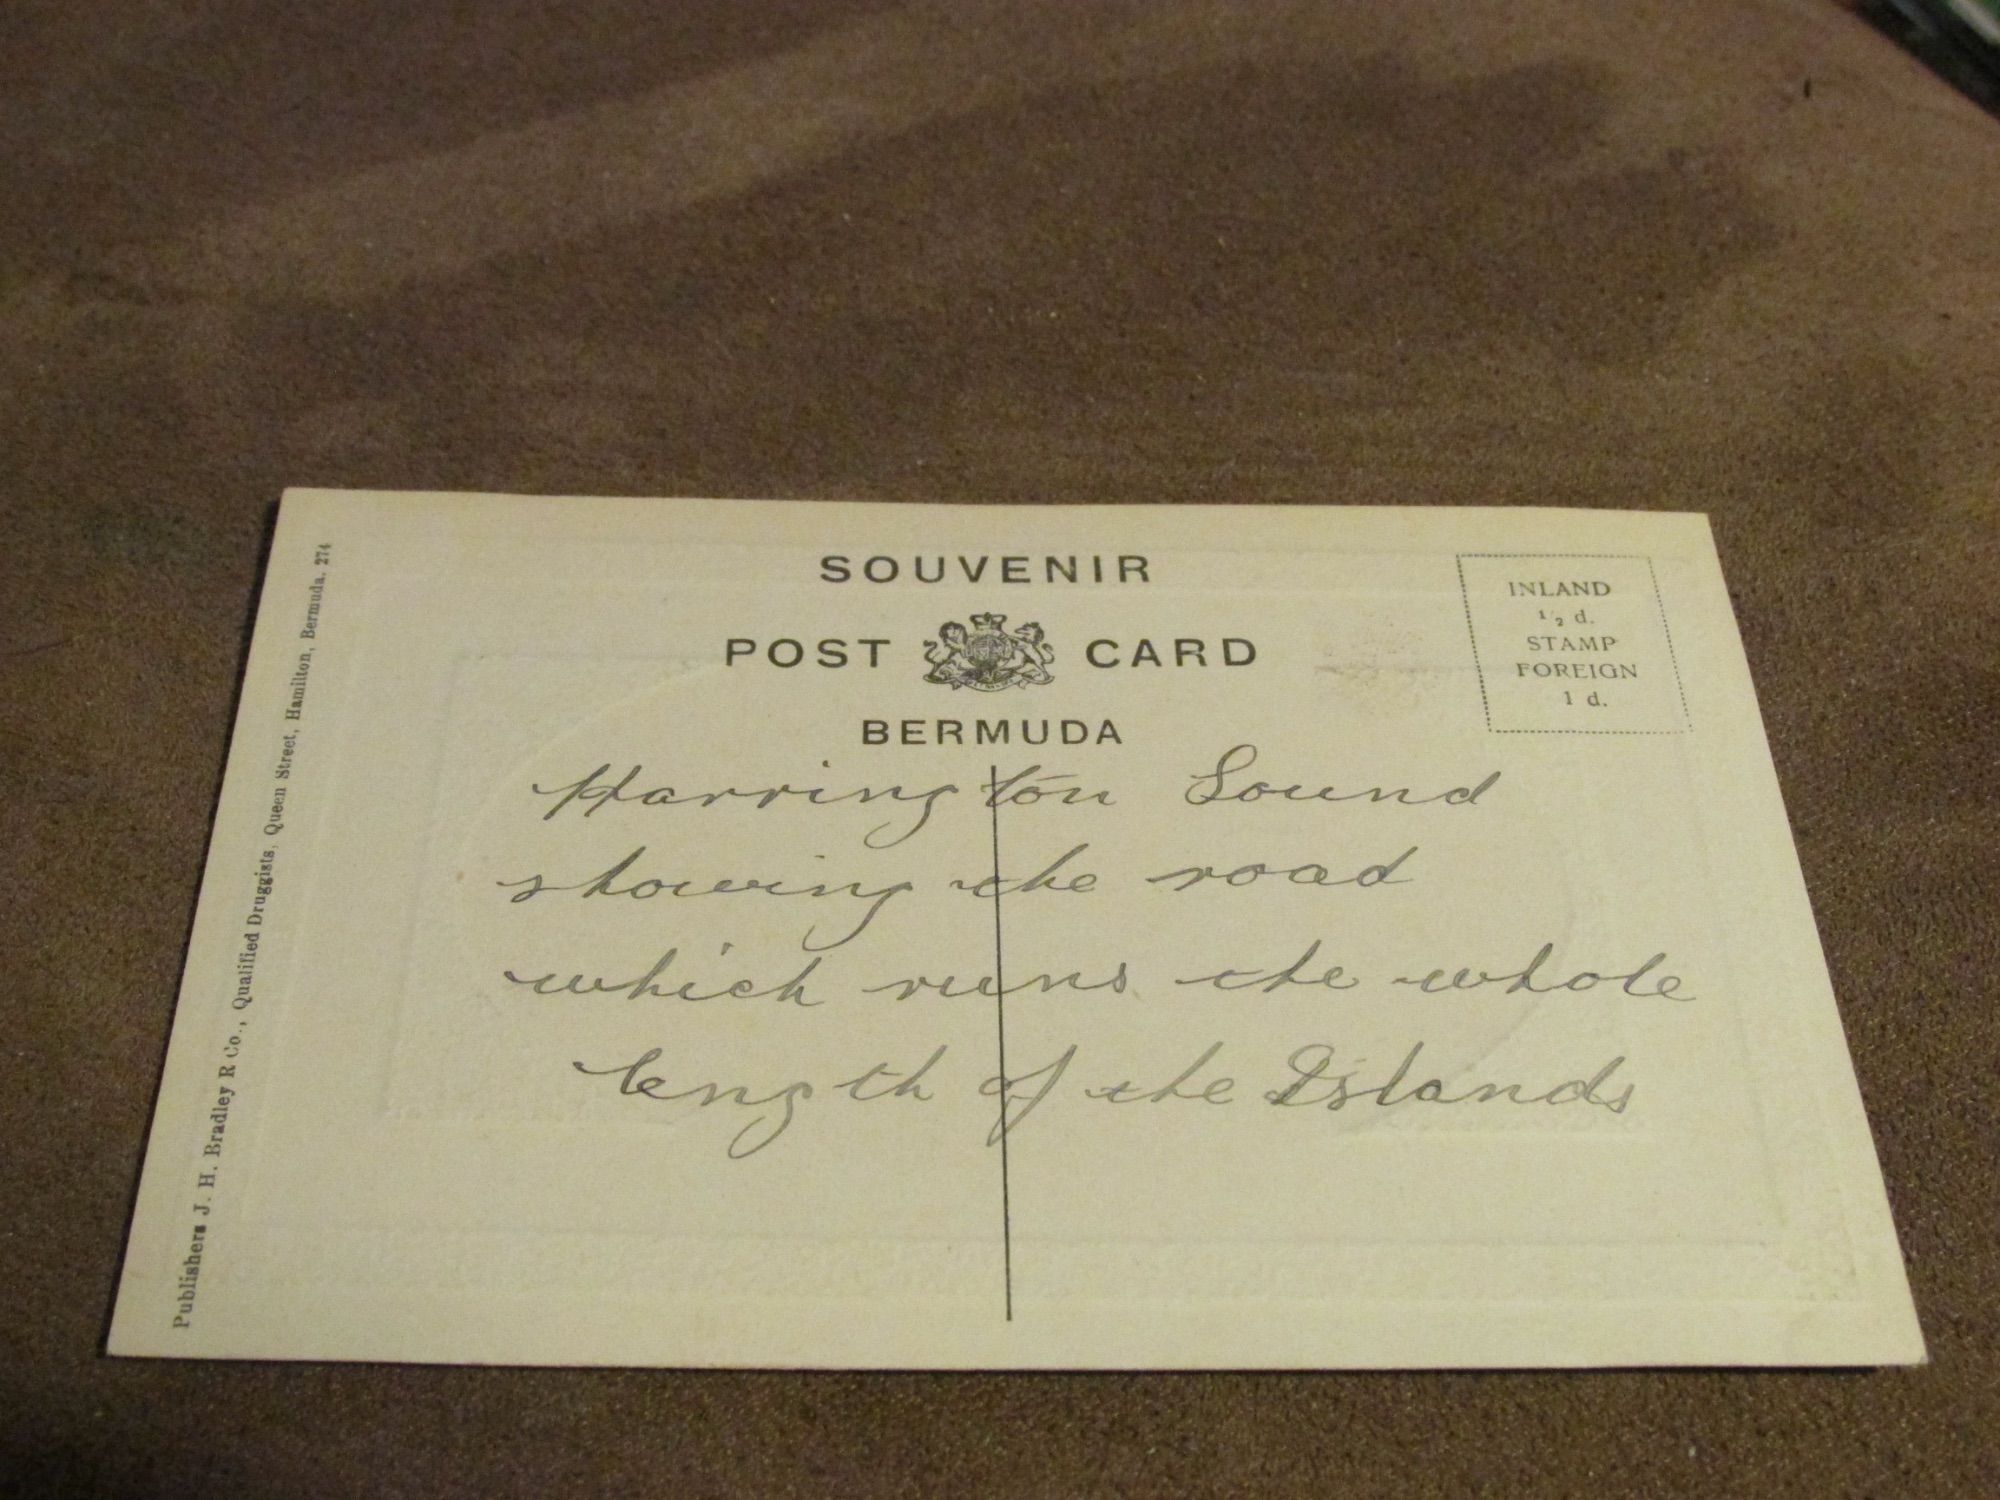 SOUVENIR
POST CARD
BERMUDA
INLAND
1/2 d.
STAMP
FOREIGN
1 d.
Harrington Sound
showing the road
which runs the whole
length of the Islands
Publishers J. H. Bradley R Co., Qualified Druggists, Queen Street, Hamilton, Bermuda. 274